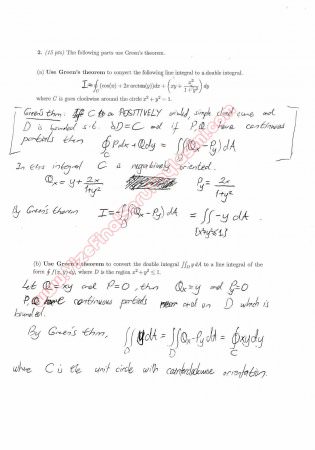 2. (15 pts) The following parts use Green's theorem.
(a) Use Green's theorem to convert the following line integral to a double integral.
I = ∮_C (cos(x) + 2x arctan(y)) dx + (xy + x²/(1+y²)) dy
where C is goes clockwise around the circle x² + y² = 1.
Green's thm: If C is a POSITIVELY oriented, simple closed curve and
D is bounded s.t. ∂D=C and if P,Q have continuous
partials then ∮_C Pdx + Qdy = ∬_D (Qx-Py)dA
In this integral C is negatively oriented.
Qx = y + 2x/(1+y²) Py = 2x/(1+y²)
By Green's theorem I = -∬(Qx-Py)dA = ∬ -y dA
{x²+y²≤1}
(b) Use Green's theorem to convert the double integral ∬_D y dA to a line integral of the
force ∮ f(x, y) dy, where D is the region x² + y² ≤ 1.
Let Q=xy and P=0, then Qx=y and Py=0
P,Q have continuous partials and on D which is
bounded.
By Green's thm, ∬_D ydA = ∬_D (Qx-Py)dA = ∮_C xydy
where C is the unit circle with counterclockwise orientation.